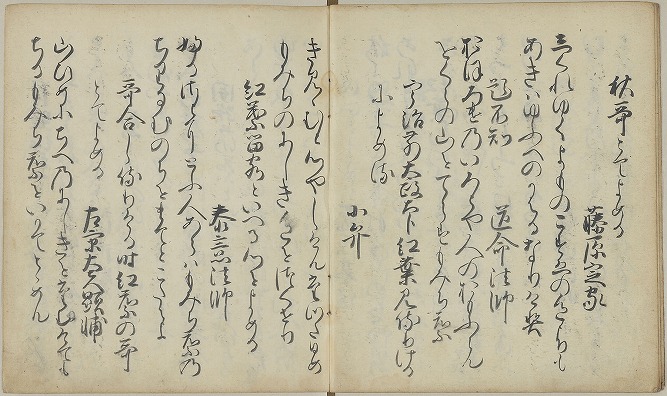 秋哥とてよめる
藤原定家
しくれゆくよものこすゑのいろよりも
あきはゆふへのかはるなりけり
題不知 道命法師
おほろけのいろとや人のおもふらん
をくらの山をてらすもみち葉
宇治前太政大臣紅葉見侍りける
によめる
小弁
きみみむと心やしけんたつたひめ
もみちのにしきいろをつくせり
紅葉留客といへる心をよめる
素意法師
故さとにとふ人あらはもみち葉の
ちりなむのちをまてとこたへよ
哥合し侍りける時紅葉の哥
とてよめる
左京大夫顕輔
山ひめにちへのにしきをたむけても
ちるもみち葉をいかてとゝめん